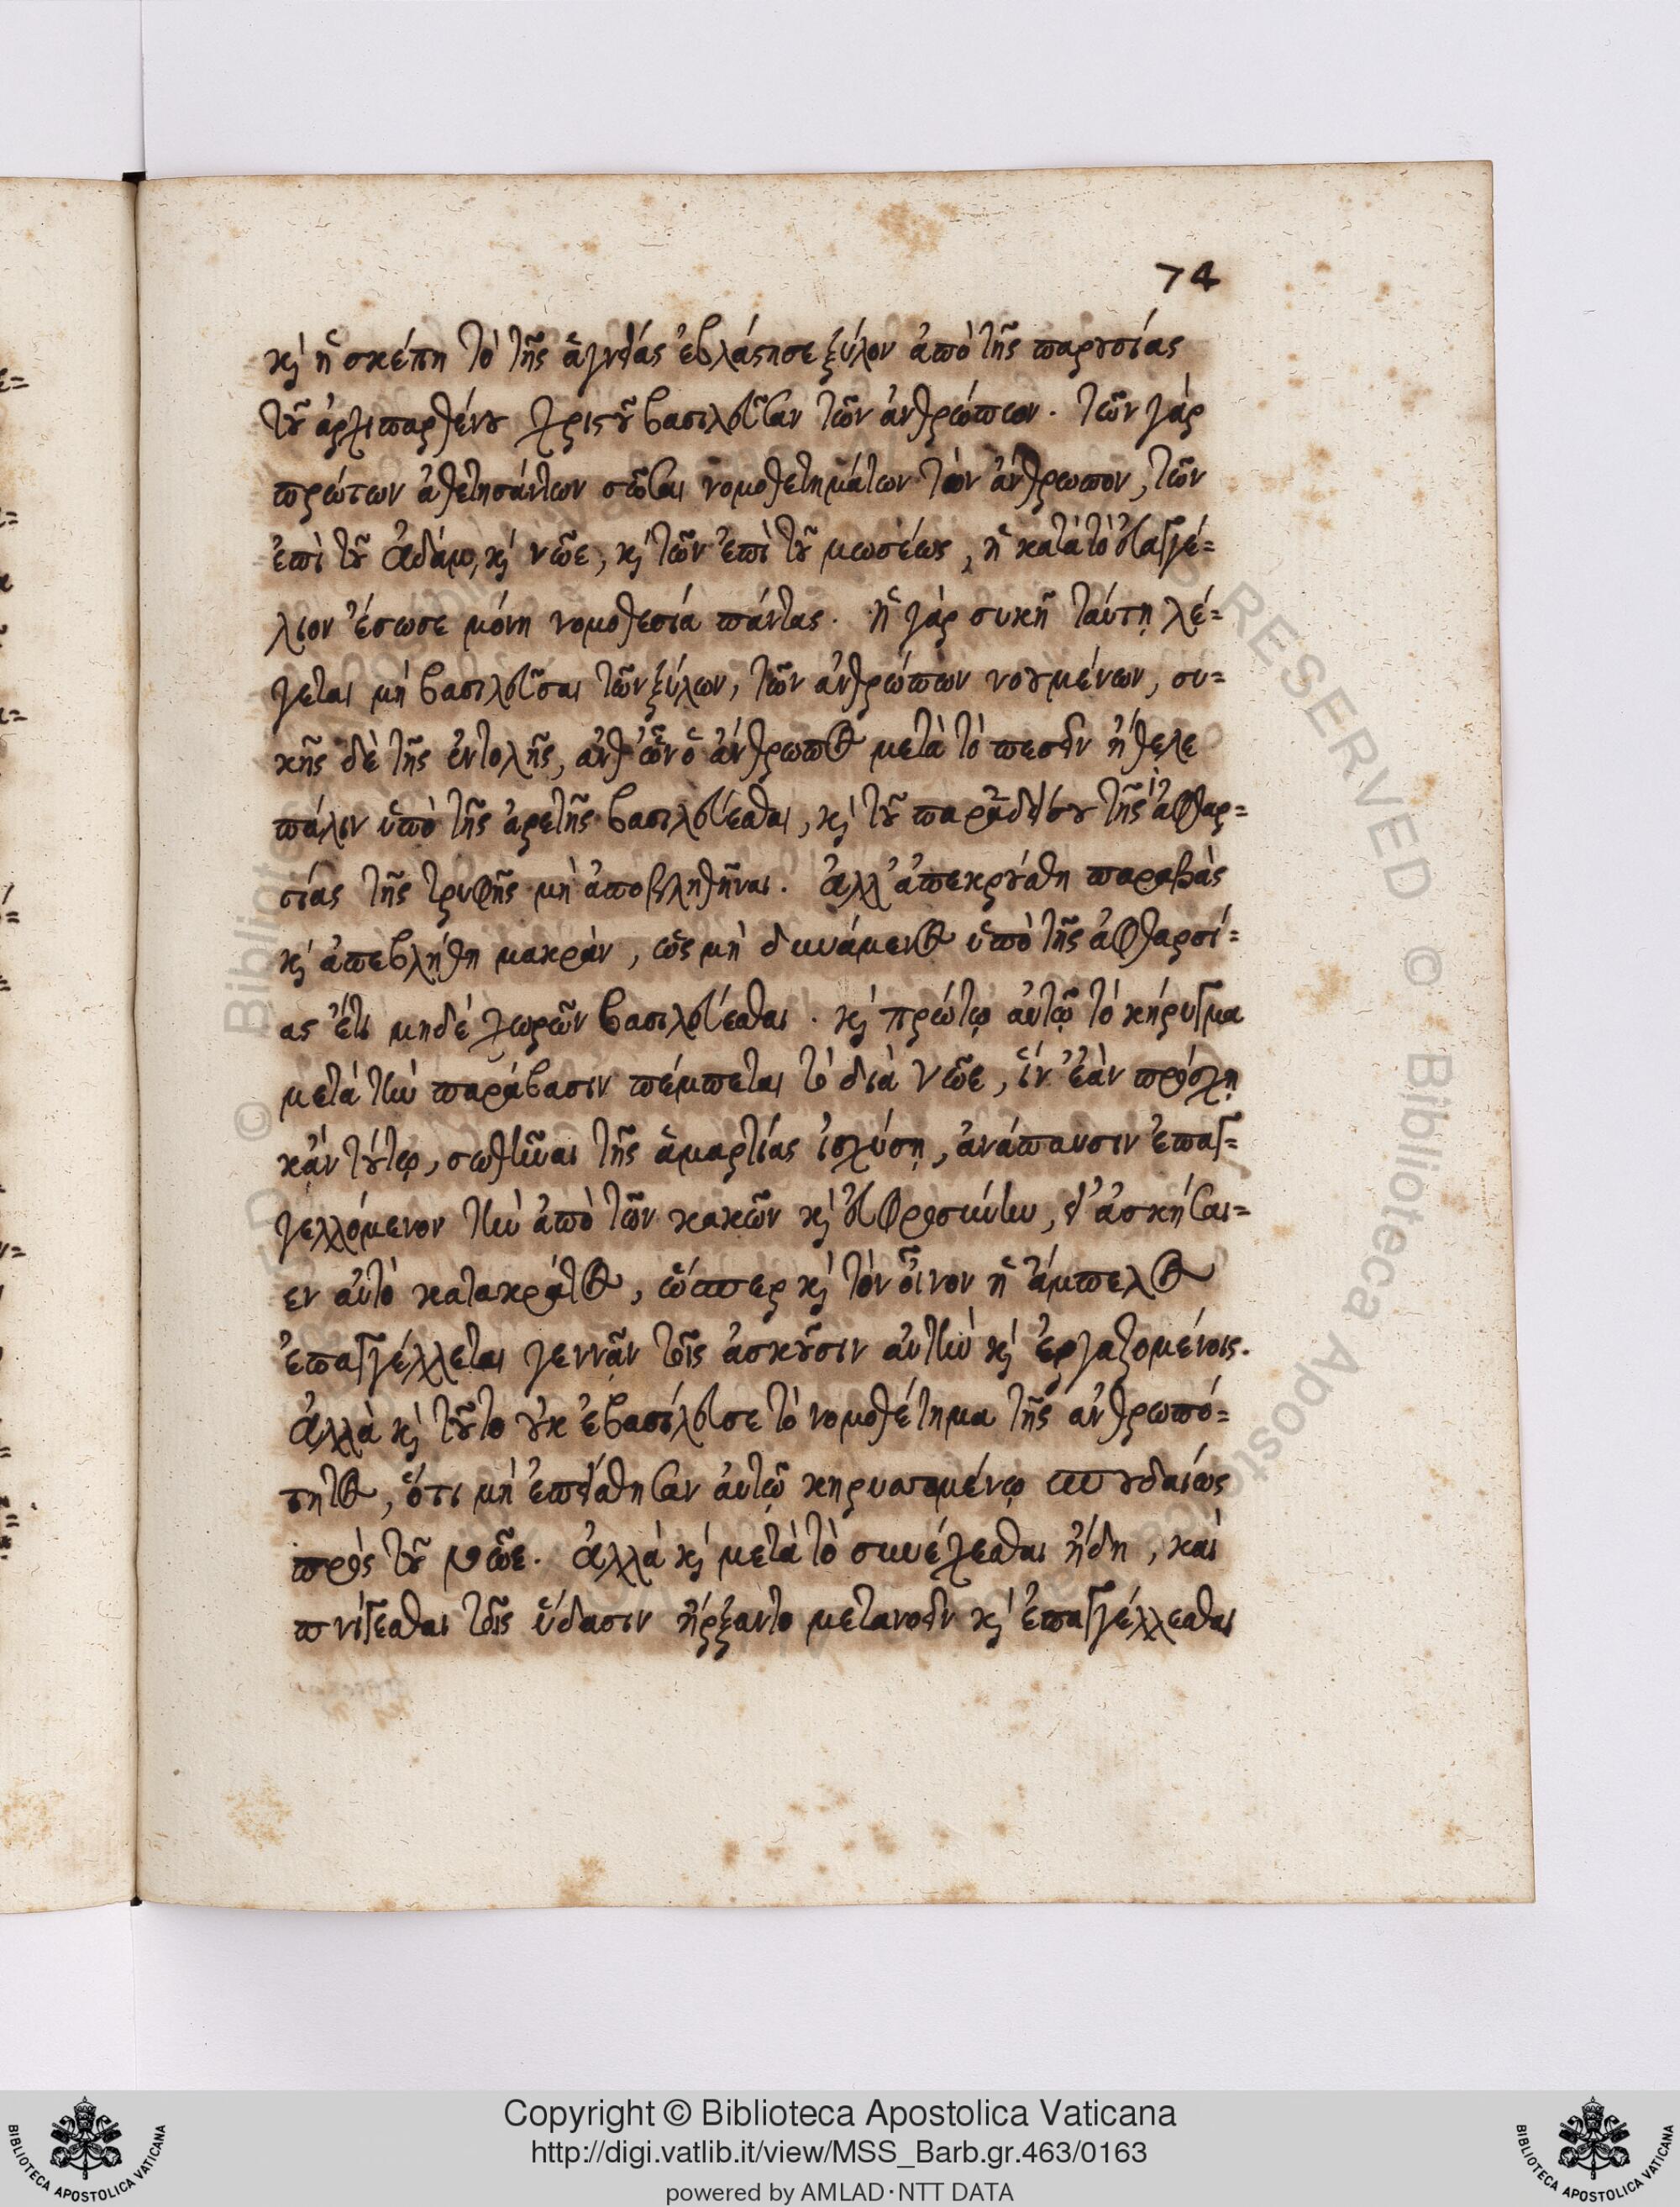 74
κ̀ ἡ σκέπη τὸ τῆς ἁγνείας ἐβλάστησε ξύλον ἀπὸ τῆς παρουσίας
τοῦ ἀρχιπαρθένου χριστοῦ βασιλεῦσαν τῶν ἀνθρώπων. τῶν γὰρ
πρώτων ἀθετησάντων σῶσαι νομοθετημάτων τὸν ἄνθρωπον, τῶν
ἐπὶ τοῦ ἀδάμ, κ̀ νῶε, κ̀ τῶν ἐπὶ τοῦ μωσέως, ἡ κατὰ τὸ εὐαγγέ=
λιον ἔσωσε μόνη νομοθεσία πάντας. ἡ γὰρ συκῆ ταύτῃ λέ=
γεται μὴ βασιλεῦσαι τῶν ξύλων, τῶν ἀνθρώπων νοουμένων, συ=
κῆς δὲ τῆς ἐντολῆς, ἀνθ' ὧν ὁ ἄνθρωπος μετὰ τὸ πεσεῖν ἤθελε
πάλιν ὑπὸ τῆς ἀρετῆς βασιλεύεσθαι, κ̀ τοῦ παραδείσου τῆς ἀφθαρ=
σίας τῆς τρυφῆς μὴ ἀποβληθῆναι. ἀλλ' ἀπεκρούσθη παραβὰς
κ̀ ἀπεβλήθη μακρὰν, ὡς μὴ δυνάμενος ὑπὸ τῆς ἀφθαρσί=
ας ἔτι μηδὲ χωρῶν βασιλεύεσθαι. κ̀ πρώτῳ αὐτῷ τὸ κήρυγμα
μετὰ τὴν παράβασιν πέμπεται τὸ διὰ νῶε, ἵν' ἐὰν πρόσχῃ
κἂν τούτῳ, σωθῆναι τῆς ἁμαρτίας ἰσχύσῃ, ἀνάπαυσιν ἐπαγ=
γελλόμενον τὴν ἀπὸ τῶν κακῶν κ̀ εὐφροσύνην, εἰ ἀσκήσαι=
εν αὐτὸ κατακράτος, ὥσπερ κ̀ τὸν οἶνον ἡ ἄμπελος
ἐπαγγέλλεται γεννᾶν τοῖς ἀσκοῦσιν αὐτὴν κ̀ ἐργαζομένοις.
ἀλλὰ κ̀ τοῦτο οὐκ ἐβασίλευσε τὸ νομοθέτημα τῆς ἀνθρωπό=
τητος, ὅτι μὴ ἐπείσθησαν αὐτῷ κηρυσσομένῳ σπουδαίως
πρὸς τοῦ νῶε. ἀλλὰ κ̀ μετὰ τὸ συνέχεσθαι ἤδη, καὶ
πνίγεσθαι τοῖς ὕδασιν ἤρξαντο μετανοεῖν κ̀ ἐπαγγέλλεσθαι
Copyright © Biblioteca Apostolica Vaticana
http://digi.vatlib.it/view/MSS_Barb.gr.463/0163
powered by AMLAD·NTT DATA